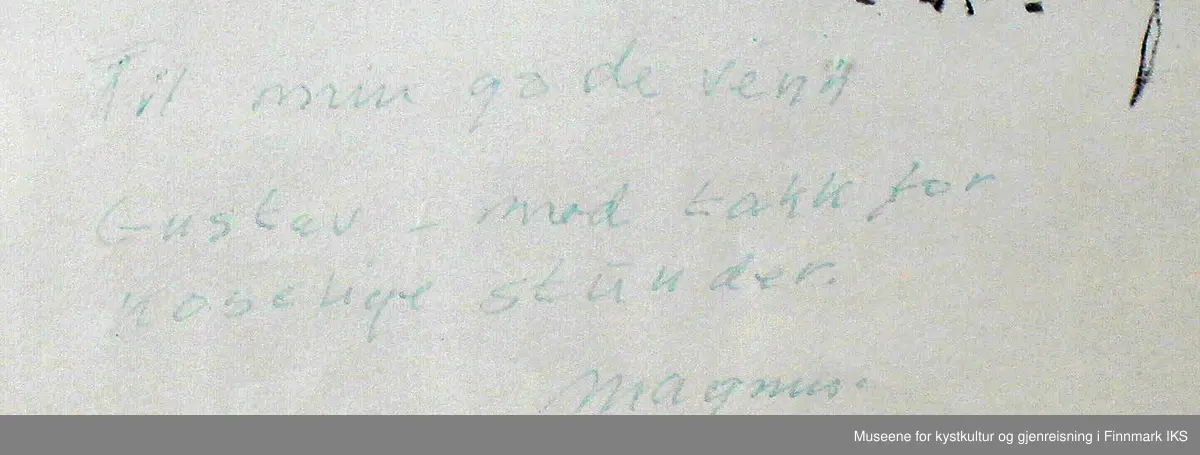 Til min gode venn
Gustav - med takk for
koselige stunder.
Magnus.
Museene for kystkultur og gjenreisning i Finnmark IKS